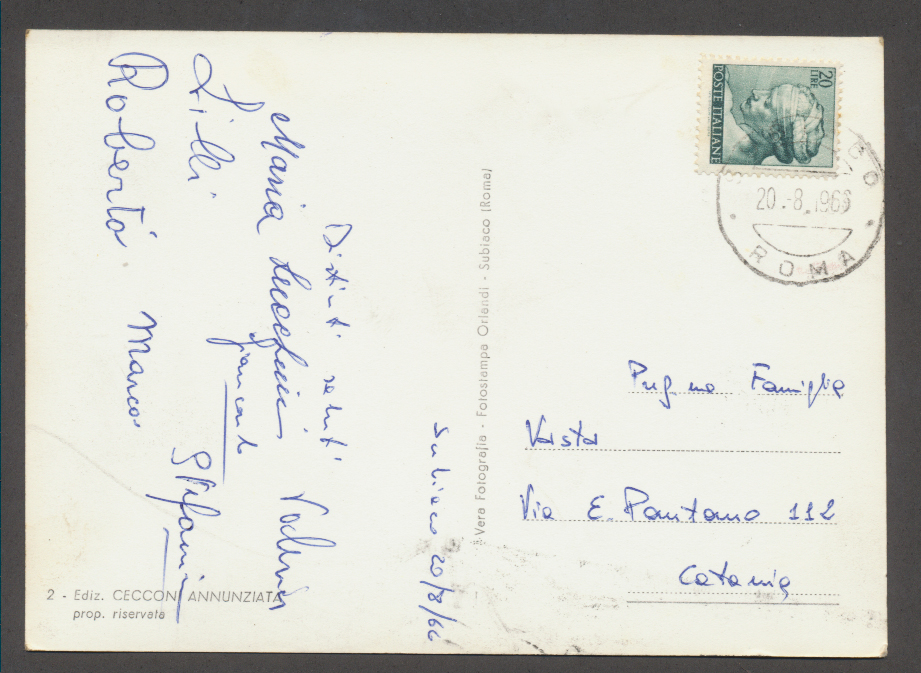 Distinti saluti
Maria
Lilli
Roberta
Giancarlo
Marco
Stefania
Subiaco 20/8/66
Vera Fotografia - Fotostampa Orlandi - Subiaco (Roma)
20 LIRE
POSTE ITALIANE
20.-8.1966
ROMA
Pregma Famiglia
Vasta
Via E. Pantano 112
Catania
2 - Ediz. CECCONI ANNUNZIATA
prop. riservata